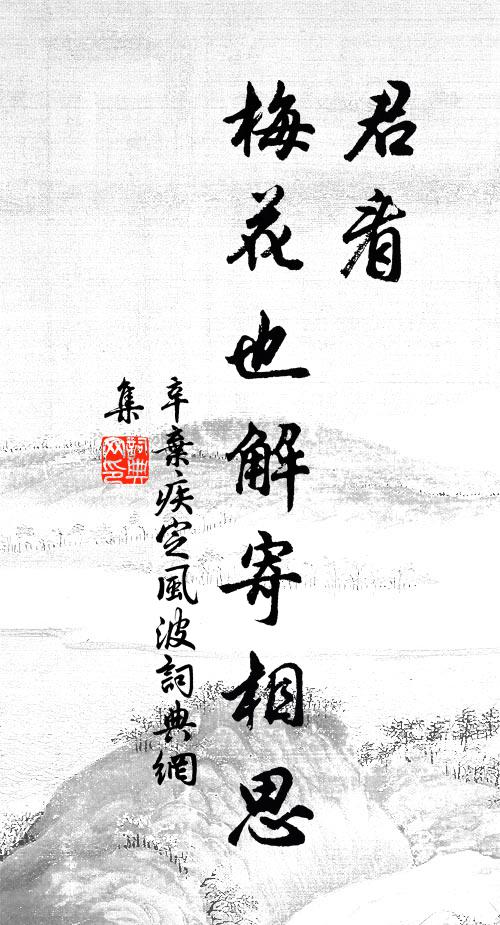 君看
梅花也解寄相思
辛棄疾定風波詞典網
集
詞典網印